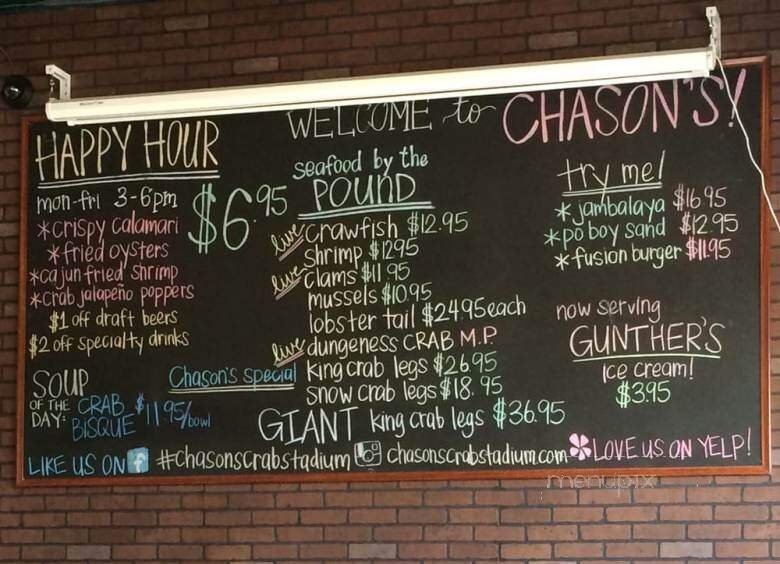 WELCOME to CHASON'S!
HAPPY HOUR
mon-fri 3-6pm
$6.95
*crispy calamari
*fried oysters
*cajun fried shrimp
*crab jalapeño poppers
$1 off draft beers
$2 off specialty drinks
SOUP
OF THE DAY: CRAB BISQUE $11.95/bowl
seafood by the
POUND
live crawfish $12.95
shrimp $12.95
live clams $11.95
mussels $10.95
lobster tail $24.95 each
live dungeness CRAB M.P.
Chason's special king crab legs $26.95
snow crab legs $18.95
GIANT king crab legs $36.95
try me!
*jambalaya $16.95
*po'boy sand $12.95
*fusion burger $11.95
now serving
GUNTHER'S
ice cream!
$3.95
LIKE US ON f #chasonscrabstadium chasonscrabstadium.com LOVE US ON YELP!
menupix